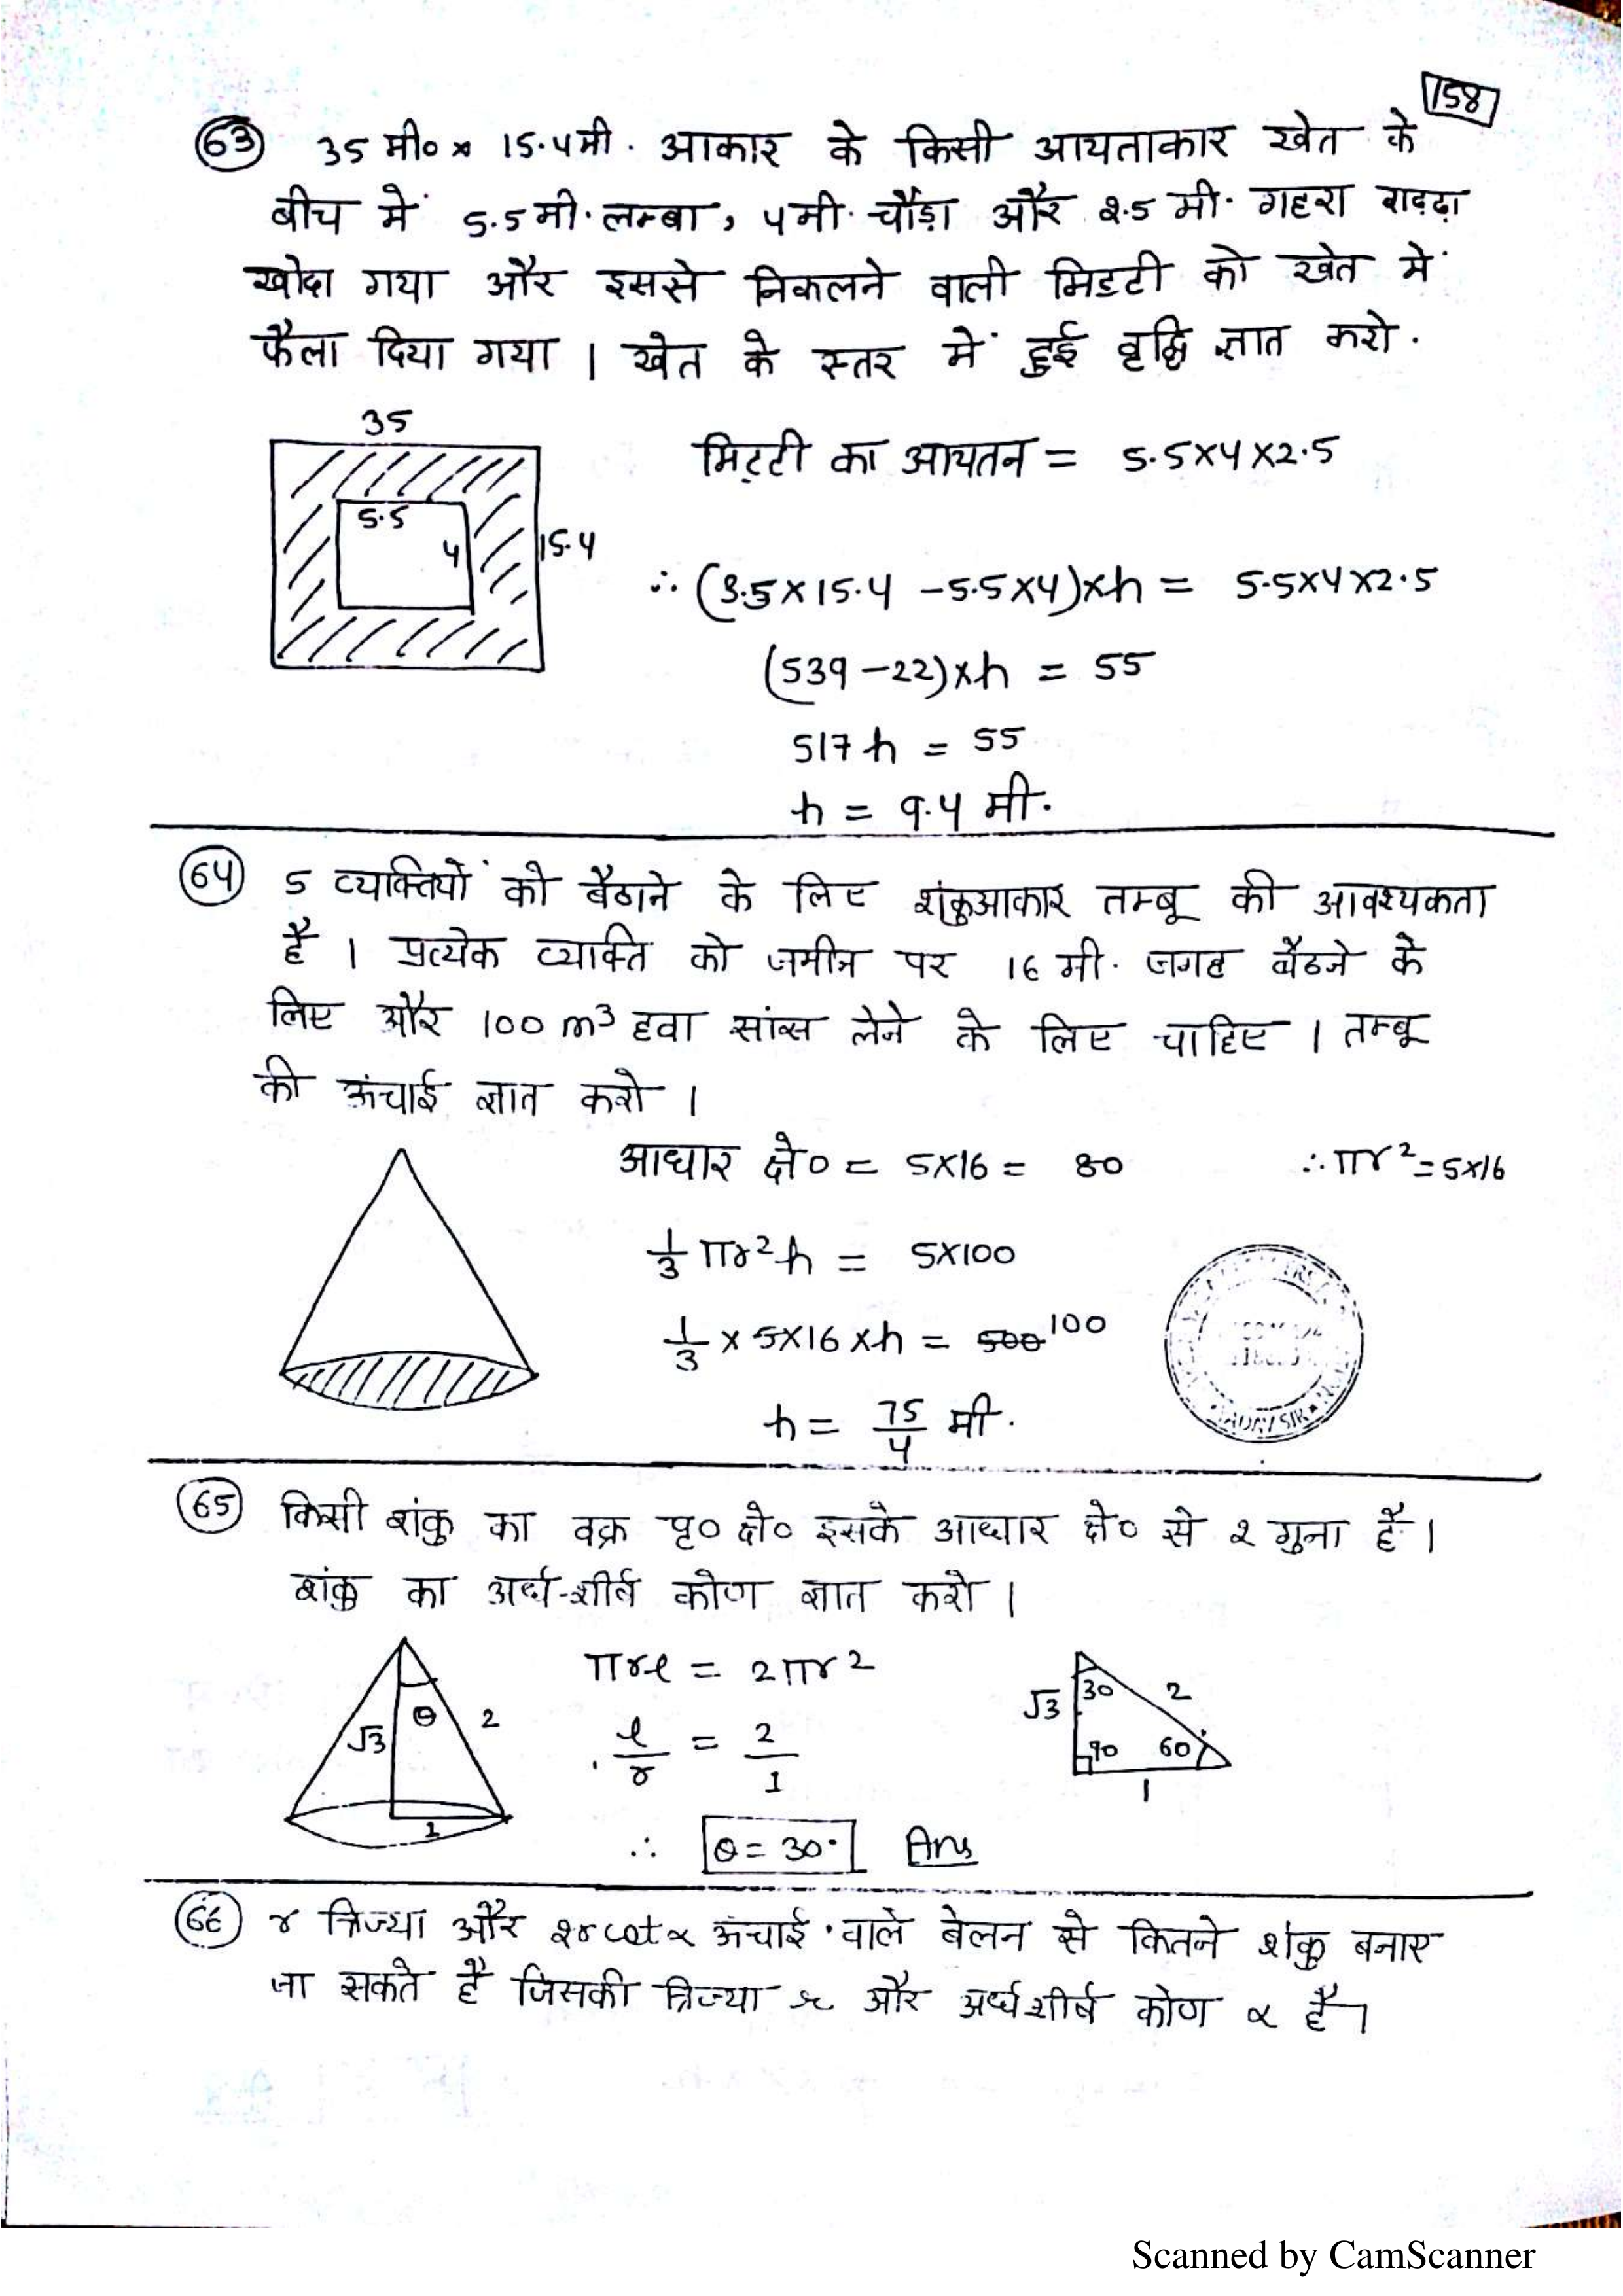 158
63 35 मी० × 15.4मी. आकार के किसी आयताकार खेत के
बीच में 5.5 मी. लम्बा, 4मी. चौड़ा और 2.5 मी. गहरा गड्ढ़ा
खोदा गया और इससे निकलने वाली मिडटी को खेत में
फैला दिया गया । खेत के स्तर में हुई वृद्धि ज्ञात करो.
35
5.5
4
15.4
मिट्टी का आयतन = 5.5×4×2.5
∴ (3.5×15.4 -5.5×4)×h = 5.5×4×2.5
(539-22)×h = 55
517h = 55
h = 9.4 मी.
64 5 व्यक्तियों को बैठाने के लिए शंकुआकार तम्बू की आवश्यकता
है । प्रत्येक व्यक्ति को जमीन पर 16 मी. जगह बैठने के
लिए और 100 m³ हवा सांस लेने के लिए चाहिए । तम्बू
की ऊंचाई ज्ञात करो ।
आधार क्षे० = 5×16 = 80 ∴ πr² = 5×16
1/3 πr²h = 5×100
1/3 × 5×16×h = 500 100
h = 75/4 मी.
65 किसी शंकु का वक्र पृ० क्षे० इसके आधार क्षे० से 2 गुना है ।
शंकु का अर्ध-शीर्ष कोण ज्ञात करो ।
√3 θ 2
1
πrl = 2πr²
l/r = 2/1
∴ θ = 30° Ans
√3 30 2
90 60
1
66 r त्रिज्या और 2rcotα ऊंचाई वाले बेलन से कितने शंकु बनाए
जा सकते है जिसकी त्रिज्या r और अर्धशीर्ष कोण α है ।
Scanned by CamScanner